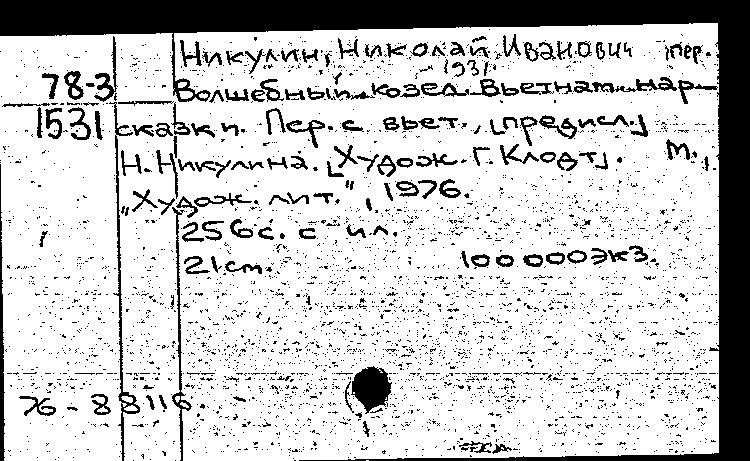 Никулин, Николай Иванович пер.
1931
78-3 Волшебный козел. Вьетнам. нар.
1531 сказки. Пер. с вьет., [предисл.]
Н. Никулина. [Худож. Г. Клодт]. М.,
"Худож. лит.", 1976.
256с. с ил.
21см. 100 000экз.
76-88116.